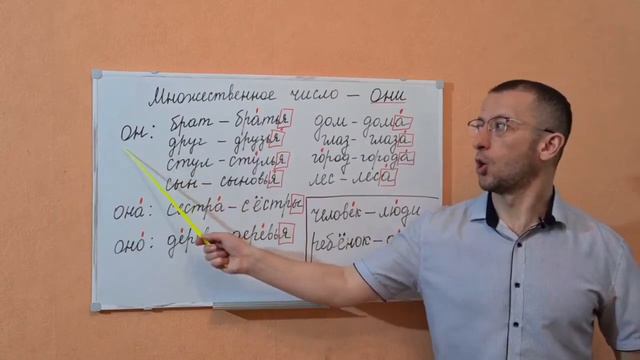 Множественное число – они
он: брат – братья дом – дома́
друг – друзья́ глаз – глаза́
стул – сту́лья го́род – города́
сын – сыновья́ лес – леса́
она́: сестра́ – сёстры челове́к – лю́ди
оно́: дере́вья ребёнок –